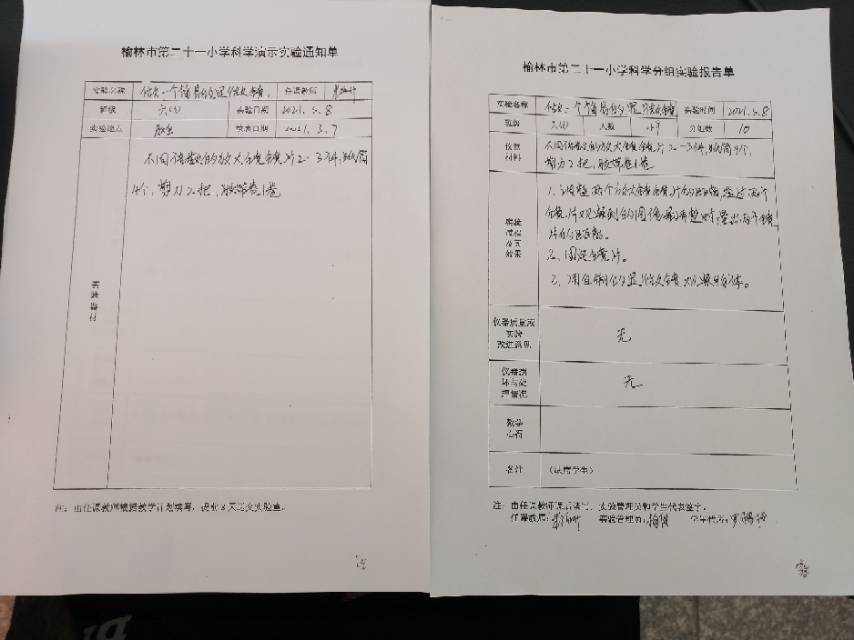 榆林市第二十一小学科学演示实验通知单
实验名称 做一个简易的显微镜 任课教师
班级 六(4) 实验日期 2021.3.8
实验地点 教室 填单日期 2021.3.7
实验器材
不同倍数的放大镜镜片2-3个，纸筒
4个，剪刀2把，胶带卷1卷
注：由任课教师根据教学计划填写，提前3天送交实验室。
榆林市第二十一小学科学分组实验报告单
实验名称 做一个简易的显微镜 实验时间 2021.3.8
班级 六(4) 人数 分组数 10
仪器材料
不同倍数的放大镜镜片2-3个，纸筒4个，
剪刀2把，胶带卷1卷
实验过程及其效果
1、调整两个放大镜镜片的距离，透过两个
镜片观察到的图像最清楚时，量出两个镜
片的距离。
2、固定镜片。
3、用自制的显微镜观察物体。
仪器质量或实验改进意见 无
仪器损坏与处理情况 无
教学心得
备注 (缺席学生)
注：由任课教师课后填写，实验管理员和学生代表签字。
任课教师： 实验管理员： 学生代表：